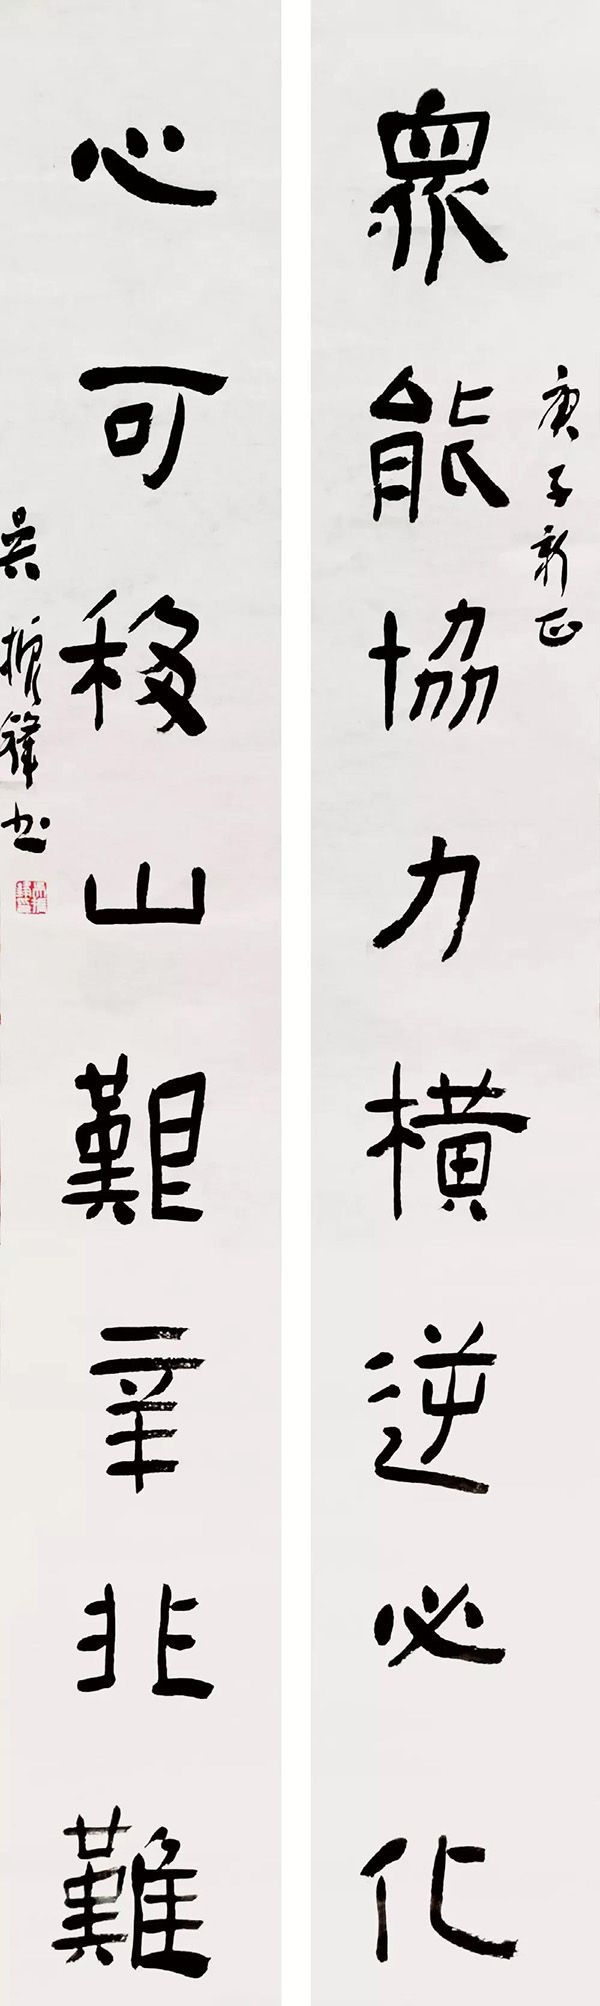 庚子新正
衆能協力橫逆必化
心可移山艱辛非難
吴振鋒书